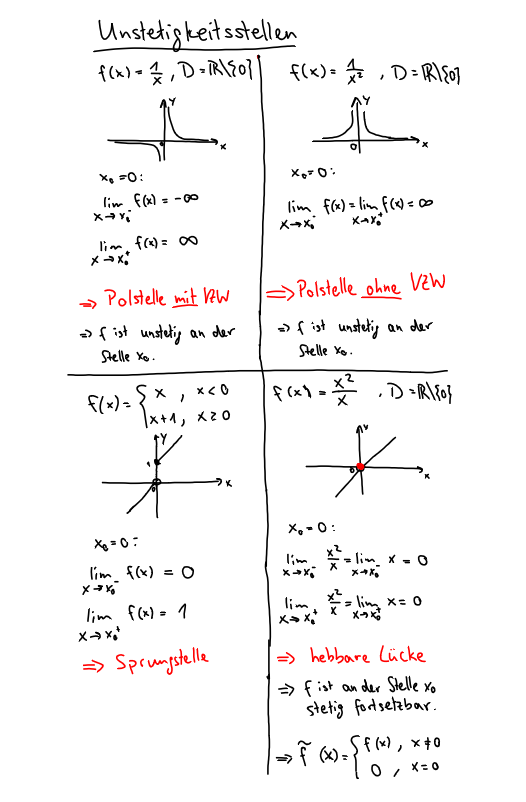 Unstetigkeitsstellen
f(x) = 1/x , D = ℝ\{0}
y
0
x
x₀ = 0:
lim x→x₀⁻ f(x) = -∞
lim x→x₀⁺ f(x) = ∞
⇒ Polstelle mit VZW
⇒ f ist unstetig an der
Stelle x₀.
f(x) = 1/x² , D = ℝ\{0}
y
0
x
x₀ = 0:
lim x→x₀⁻ f(x) = lim x→x₀⁺ f(x) = ∞
⇒ Polstelle ohne VZW
⇒ f ist unstetig an der
Stelle x₀.
f(x) = { x , x < 0
x+1 , x ≥ 0
y
1
0
x
x₀ = 0:
lim x→x₀⁻ f(x) = 0
lim x→x₀⁺ f(x) = 1
⇒ Sprungstelle
f(x) = x²/x , D = ℝ\{0}
y
0
x
x₀ = 0:
lim x→x₀⁻ x²/x = lim x→x₀⁻ x = 0
lim x→x₀⁺ x²/x = lim x→x₀⁺ x = 0
⇒ hebbare Lücke
⇒ f ist an der Stelle x₀
stetig fortsetzbar.
⇒ f̃(x) = { f(x) , x ≠ 0
0 , x = 0